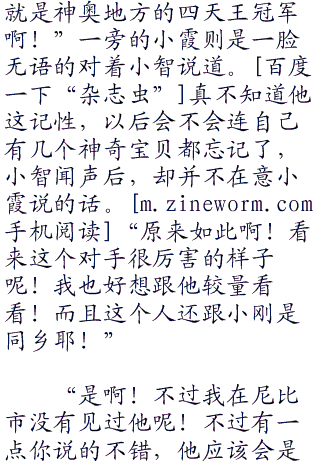 就是神奥地方的四天王冠军
啊！”一旁的小霞则是一脸
无语的对着小智说道。[百度
一下“杂志虫”]真不知道他
这记性，以后会不会连自己
有几个神奇宝贝都忘记了，
小智闻声后，却并不在意小
霞说的话。[m.zineworm.com
手机阅读]“原来如此啊！看
来这个对手很厉害的样子
呢！我也好想跟他较量看
看！而且这个人还跟小刚是
同乡耶！”
“是啊！不过我在尼比
市没有见过他呢！不过有一
点你说的不错，他应该会是